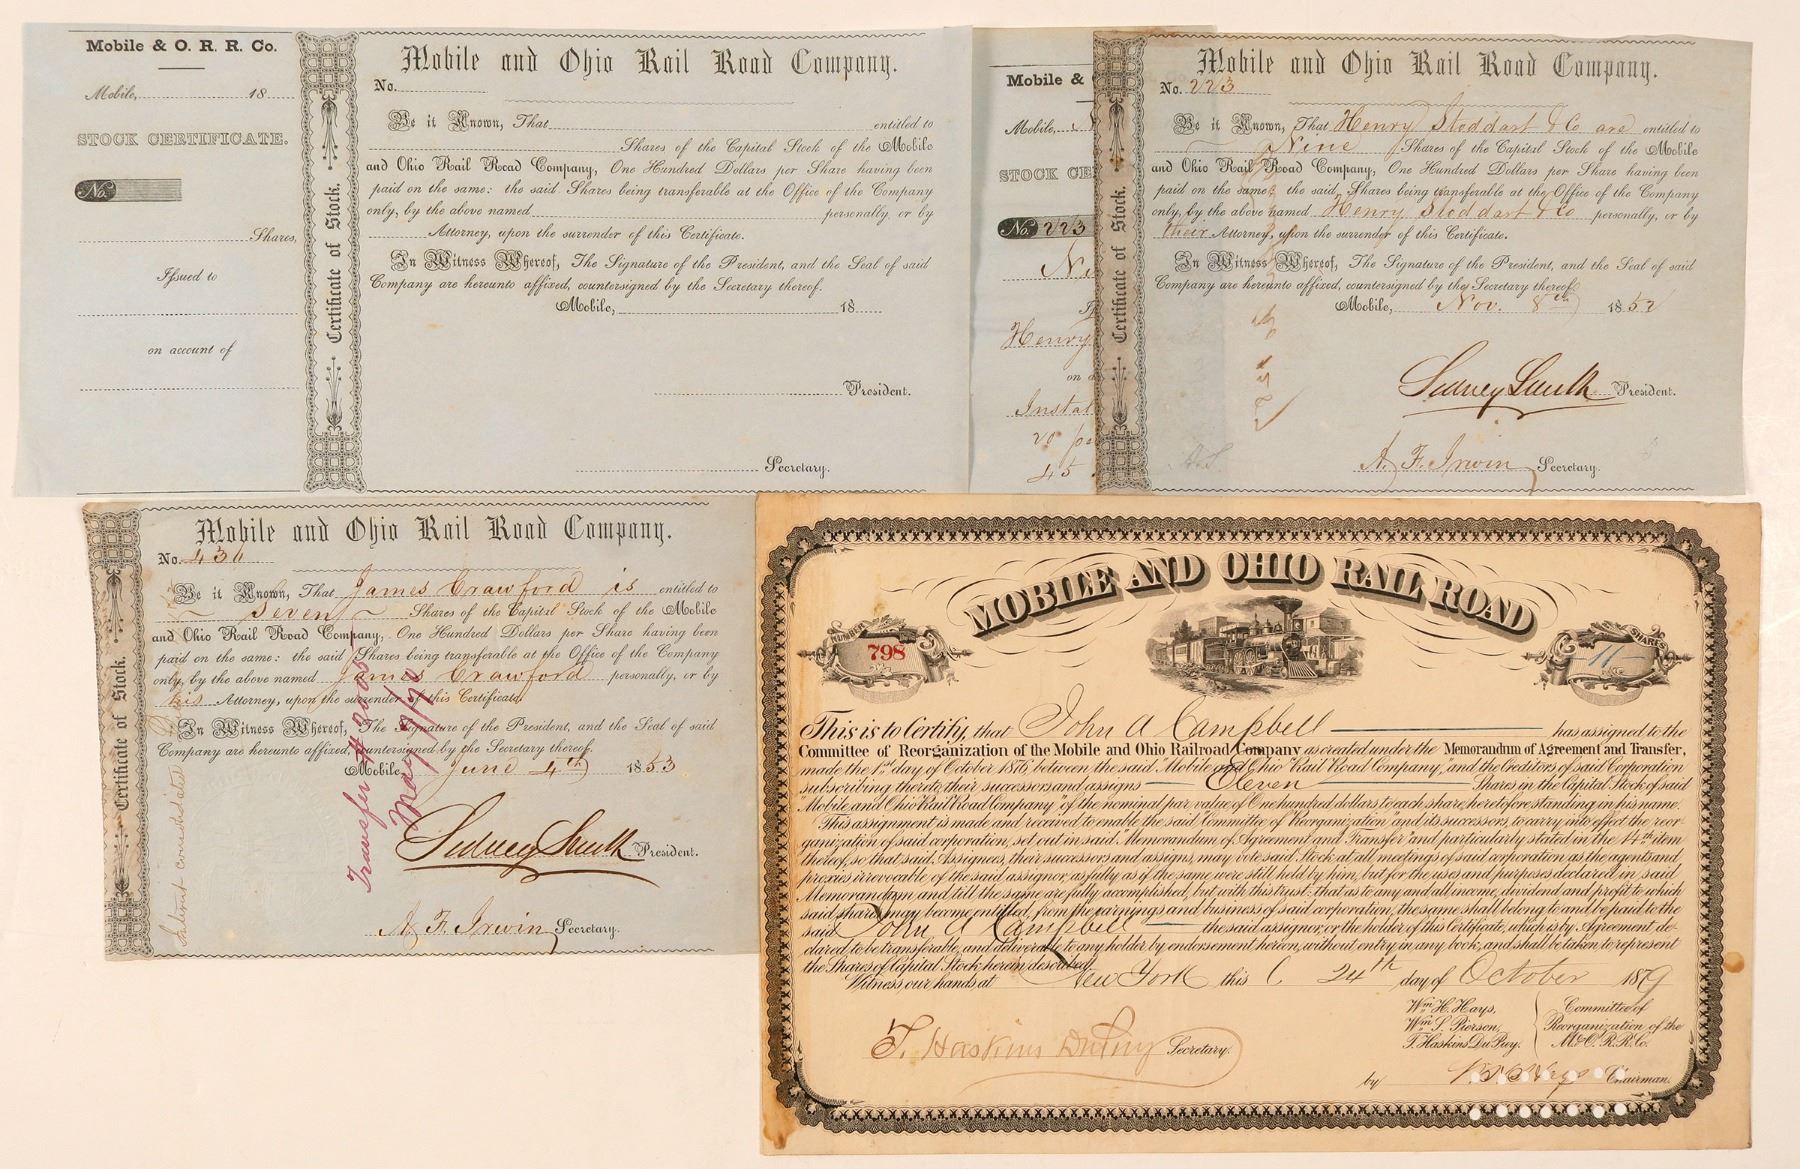 Mobile & O. R. R. Co.
Mobile, 18
STOCK CERTIFICATE.
No.
Shares,
Issued to
on account of
Certificate of Stock.
Mobile and Ohio Rail Road Company.
No.
Be it Known, That entitled to
Shares of the Capital Stock of the Mobile
and Ohio Rail Road Company, One Hundred Dollars per Share having been
paid on the same: the said Shares being transferable at the Office of the Company
only, by the above named personally, or by
Attorney, upon the surrender of this Certificate.
In Witness Whereof, The Signature of the President, and the Seal of said
Company are hereunto affixed, countersigned by the Secretary thereof.
Mobile, 18
President.
Secretary.
Mobile &
Mobile,
STOCK CE
No. 223
Henry
on a
Instal
20
45
Certificate of Stock.
Mobile and Ohio Rail Road Company.
No. 223
Be it Known, That Henry Stoddart & Co are entitled to
Nine Shares of the Capital Stock of the Mobile
and Ohio Rail Road Company, One Hundred Dollars per Share having been
paid on the same: the said Shares being transferable at the Office of the Company
only, by the above named Henry Stoddart & Co personally, or by
their Attorney, upon the surrender of this Certificate.
In Witness Whereof, The Signature of the President, and the Seal of said
Company are hereunto affixed, countersigned by the Secretary thereof.
Mobile, Nov. 8th 1852
Sidney Smith President.
A. F. Irwin Secretary.
Certificate of Stock.
Mobile and Ohio Rail Road Company.
No. 436
Be it Known, That James Crawford is entitled to
Seven Shares of the Capital Stock of the Mobile
and Ohio Rail Road Company, One Hundred Dollars per Share having been
paid on the same: the said Shares being transferable at the Office of the Company
only, by the above named James Crawford personally, or by
his Attorney, upon the surrender of this Certificate.
In Witness Whereof, The Signature of the President, and the Seal of said
Company are hereunto affixed, countersigned by the Secretary thereof.
Mobile, June 4th 1853
Sidney Smith President.
A. F. Irwin Secretary.
Interest consolidated
Transfer # 3005
May 9/72
MOBILE AND OHIO RAIL ROAD
NUMBER
798
SHARES
11
This is to Certify, that John A Campbell has assigned to the
Committee of Reorganization of the Mobile and Ohio Railroad Company as created under the Memorandum of Agreement and Transfer,
made the 1st day of October 1876, between the said "Mobile and Ohio Rail Road Company," and the Creditors of said Corporation
subscribing thereto, their successors and assigns Eleven Shares in the Capital Stock of said
"Mobile and Ohio Rail Road Company" of the nominal par value of One hundred dollars to each share, heretofore standing in his name.
This assignment is made and received to enable the said "Committee of Reorganization" and its successors, to carry into effect the reor-
ganization of said corporation, set out in said "Memorandum of Agreement and Transfer" and particularly stated in the 14th item
thereof, so that said Assignees, their successors and assigns, may vote said Stock at all meetings of said corporation as the agents and
proxies irrevocable of the said assignor, as fully as if the same were still held by him, but for the uses and purposes declared in said
Memorandum, and till the same are fully accomplished, but with this trust: that as to any and all income, dividend and profit to which
said shares may become entitled, from the earnings and business of said corporation, the same shall belong to and be paid to the
said John A Campbell the said assignor, or the holder of this Certificate, which is by Agreement de-
clared to be transferable, and deliverable to any holder by endorsement hereon, without entry in any book, and shall be taken to represent
the Shares of Capital Stock herein described.
Witness our hands at New York this 24th day of October 1879
Wm. H. Hays,
Wm. S. Pierson,
T. Haskins Du Puy.
Committee of
Reorganization of the
M. & O. R. R. Co.
T. Haskins DuPuy Secretary.
by Chairman.